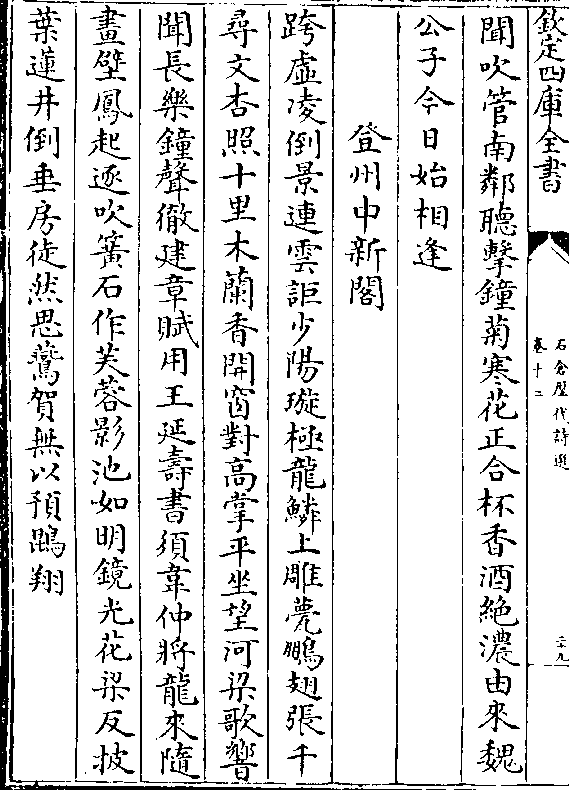 欽定四庫全書
石倉歷代詩選
卷十二
二十九
聞吹管南鄰聽擊鐘菊寒花正合杯香酒絶濃由來魏
公子今日始相逢
登州中新閣
跨虛凌倒景連雲詎少陽璇極龍鱗上雕甍鵬翅張千
尋文杏照十里木蘭香開窗對高掌平坐望河梁歌響
聞長樂鐘聲徹建章賦用王延壽書須韋仲將龍來隨
畫壁鳳起逐吹簧石作芙蓉影池如明鏡光花梁反披
葉蓮井倒垂房徒然思鷰賀無以預鵾翔